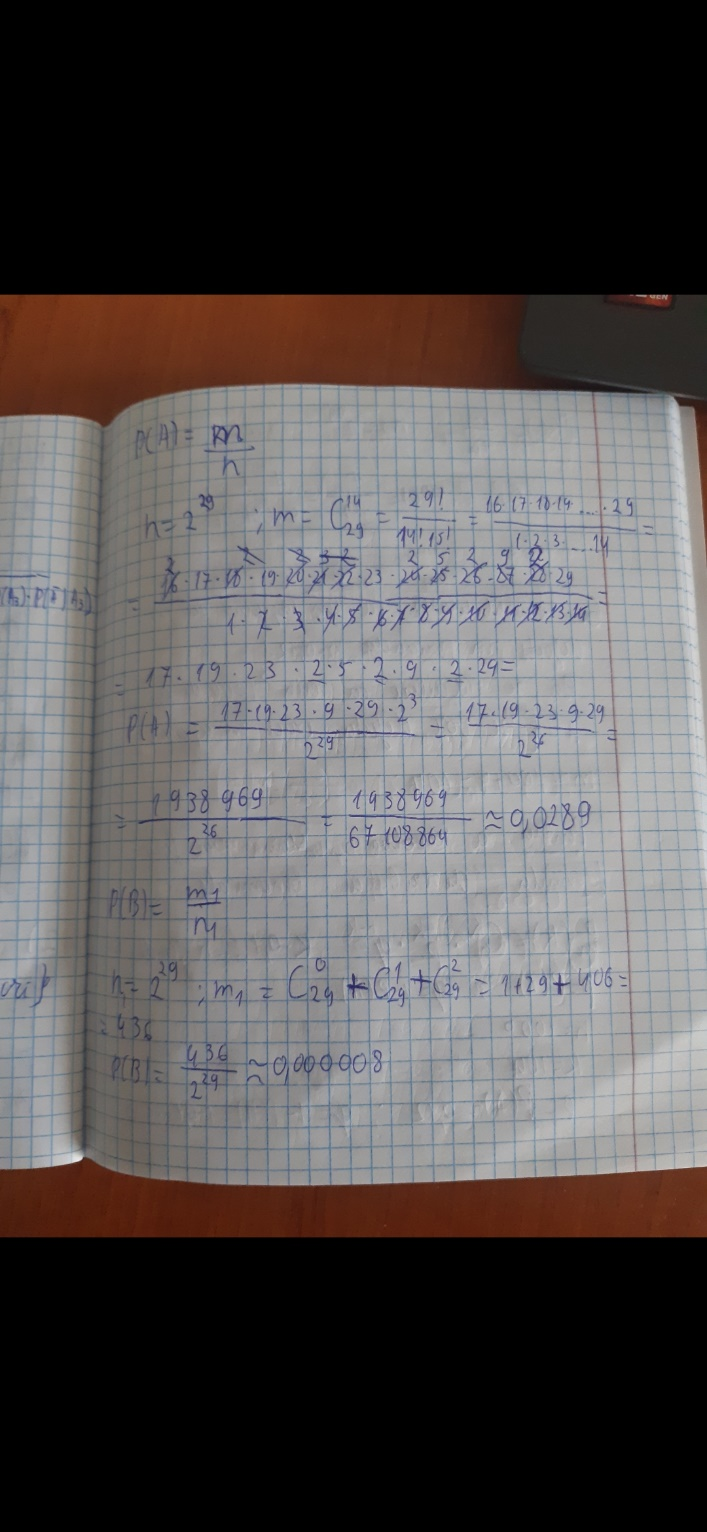 P(A) = m/n
n = 2^29 ; m = C_29^14 = 29!/(14! 15!) = (16·17·18·19·.....·29)/(1·2·3·....14) =
= (16·17·18·19·20·21·22·23·24·25·26·27·28·29)/(1·2·3·4·5·6·7·8·9·10·11·12·13·14) =
= 17·19·23·2·5·2·9·2·29 =
P(A) = (17·19·23·9·29·2^3)/2^29 = (17·19·23·9·29)/2^26 =
= 1938969/2^26 = 1938969/67108864 ≈ 0,0289
P(B) = m1/n1
n = 2^29 ; m1 = C_29^0 + C_29^1 + C_29^2 = 1+29+406 =
= 436
P(B) = 436/2^29 ≈ 0,000008